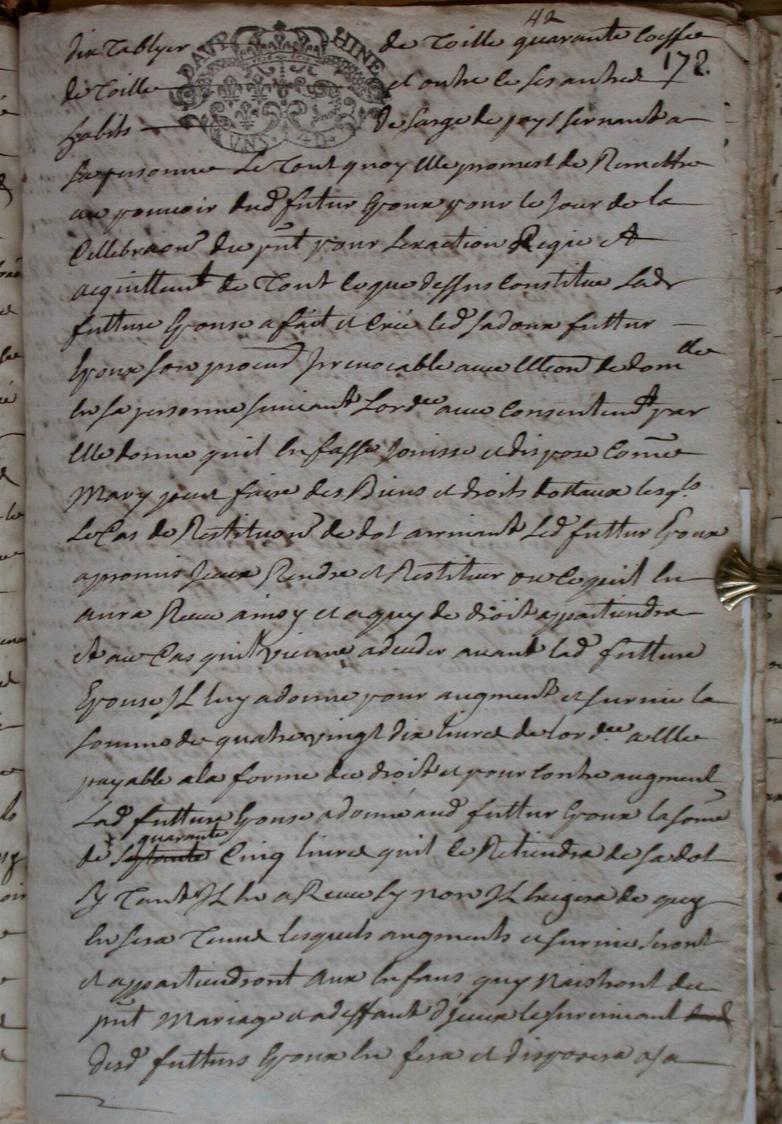 42
dix Tablyer de Toille quarante Coeffe
172
de Toille et outre ce ses autres
DAUPHINE
UNS. 4 D.
habits de sarge de pays servant a
sa personne Le Tout quoy Elle promest de Remettre
au pouvoir dud futtur Epoux pour le Jour de la
Cellebraon du pnt pour Lexaction Regie et
acquittement de Tout ce que dessus constitue Lade
futture Epouse a fait et Cree led futtur
Epoux son procur Jrrevocable avec Election de dom
en sa personne suivant Lordre avec Consentement par
Elle donne quil en fasse Jouisse et dispose Comme
Mary peut faire des Biens et droits dottaux lesqls
Le Cas de Restituon de dot arrivant Led futtur Epoux
a promis Jceux Rendre et Restituer ou Ce quil en
aura Reeu ainsy et a quy de droit appartiendra
Et au Cas quil vienne a deceder avant lad futture
Epouse JL luy a donne pour augment et survie la
somme de quatre vingt dix livres de lordre a Elle
payable a la forme du droit et pour Contre augment
Lad futture Epouse a donné aud futtur Epoux la some
quarante
de septante Cinq livres quil se Retiendra de sa dot
Sy Tant JL en a Reeu Sy non JL Exigera de quy
En sera Tenu lesquels augments et survie seront
et appartiendront aux Enfans quy Naistront du
pnt Mariage et a deffaut djceux le survivant
desd futturs Epoux en fera et disposera a sa